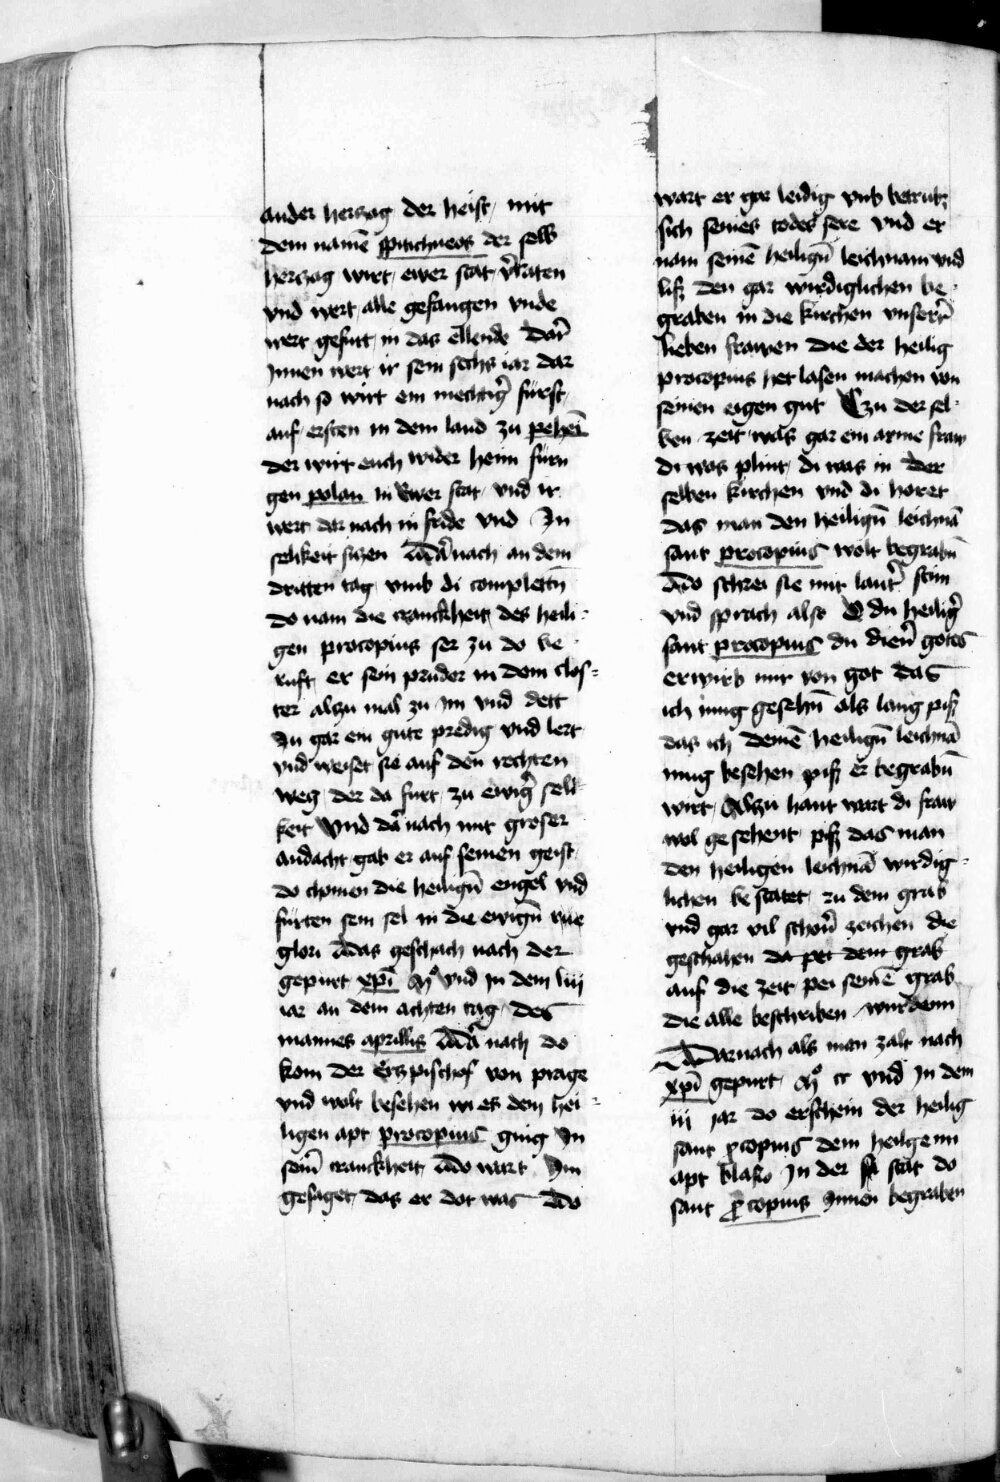 ander herczog der heist mit
dem namē spitichneos der selb
herczog wirt ewer stat v̄raten
vnd wert alle gefangen vnde
wert gefurt in das ellende Dar̄
Innen wert ir sein sechs iar dar
nach so wirt ein mechtiḡ fürst
auf ersten in dem land zu pehei̅
der wirt euch wider heim fürn
gen polan in ewer stat vnd ir
wert dar nach in fride vnd In
selikeit siczen Dar̄nach an dem
dritten tag vmb di complettn̄
do nam die kranckheit des heili-
gen procopius ser zu do be
ruft er sein pruder in dem clos-
ter alzu mal zu im vnd dett
In gar ein gute predig vnd lert
vnd weiset sie auf den rechten
weg der da furt zu ewiḡ seli-
keit Vnd dar̄nach mit groser
andacht gab er auf seinen geist
do chomen die heilign̄ engel vnd
fürten sein sel in die ewign̄
glori Das geschach nach der
gepurt xp̄i Mͦ vnd in dem liij
iar an dem achten tag des
mannes aprillis Dar̄ nach do
kom der Erczpischof von prage
vnd wolt besehen wi es dem hei-
ligen apt procopius ging In
sein̄ kranckheit Do wart Im
gesaget das er dot was Do
wart er gar leidig vnd betrubt
sich seines todes sere vnd er
nam seinē heilign̄ leichnam vnd
lisz den gar wirdiglichen be-
graben in die kirchen vnserr̄
lieben frawen die der heilig
procopius het lasen machen von
seinen eigen gut Czu der sel-
ben zeit was gar ein arme fraw
di was plint di was in der
selben kirchen vnd di horet
das man den heilign̄ leichnā
sant procopius wolt begrabn̄
Do schrei sie mit laut̄ stim
vnd sprach also O du heiliḡ
sant procopius du dien̄ gotes
erwirb mir von got das
ich mug gesehn̄ als lang pisz
das ich deinē heilign̄ leichnā
mug besehen pisz er begrabn̄
wirt Alzu hant wart di fraw
wol gesehent pisz das man
den heiligen leichnā wirdig-
lichen bestatet zu dem grab
vnd gar vil schon̄ zeichen die
geschahen da pei dem grab
auf die zeit pei seinē grab
die alle beschriben wurdenn
Darnach als man zalt nach
xp̄i gepurt Mͦ cc vnd in dem
iij jar do erschein der heilig
sant p̄copius dem heilgenn
apt blasio In der stat do
sant p̄copius Innen begraben